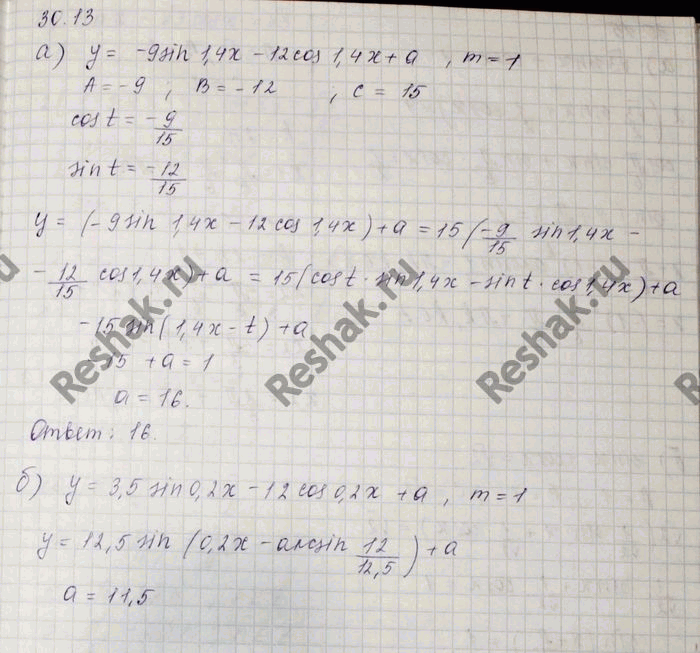 30.13
а) y = -9sin 1,4x - 12cos 1,4x + a , m = 1
A = -9 ; B = -12 ; C = 15
cos t = -9/15
sin t = -12/15
y = (-9sin 1,4x - 12cos 1,4x) + a = 15(-9/15 sin1,4x -
- 12/15 cos1,4x) + a = 15(cost · sin1,4x - sint · cos1,4x) + a
-15 sin(1,4x - t) + a
-15 + a = 1
a = 16.
Ответ: 16.
б) y = 3,5 sin0,2x - 12 cos0,2x + a , m = 1
y = 12,5 sin (0,2x - arcsin 12/12,5) + a
a = 11,5
Reshak.ru
Reshak.ru
Reshak.ru